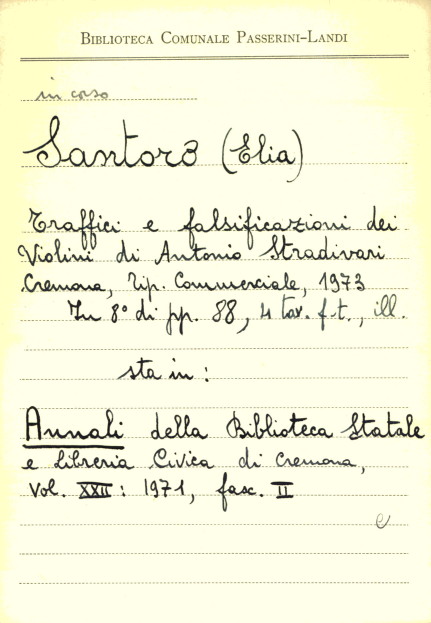 BIBLIOTECA COMUNALE PASSERINI-LANDI
in corso
Santoro (Elia)
Traffici e falsificazioni dei
Violini di Antonio Stradivari
Cremona, Tip. Commerciale, 1973
In 8° di pp. 88, 4 tav. f.t., ill.
sta in:
Annali della Biblioteca Statale
e Libreria Civica di Cremona,
Vol. XXII: 1971, fasc. II
e